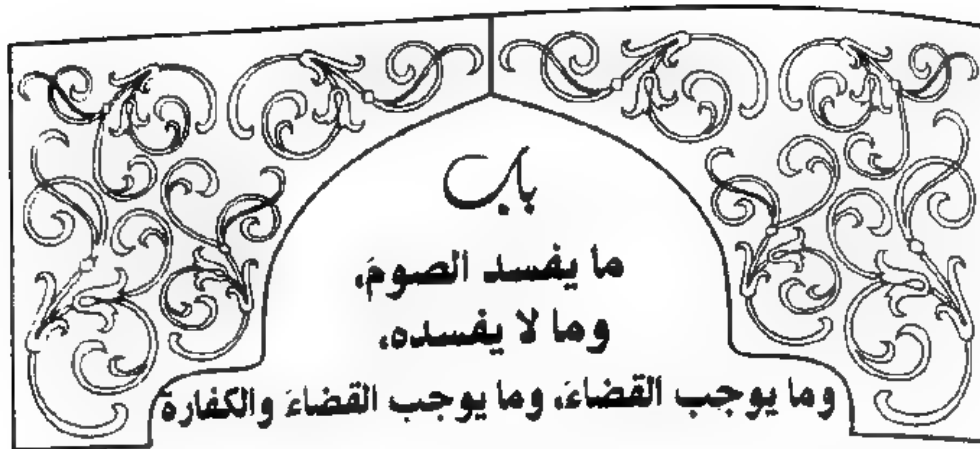 باب
ما يفسد الصومَ،
وما لا يفسده،
وما يوجب القضاءَ، وما يوجب القضاءَ والكفارة